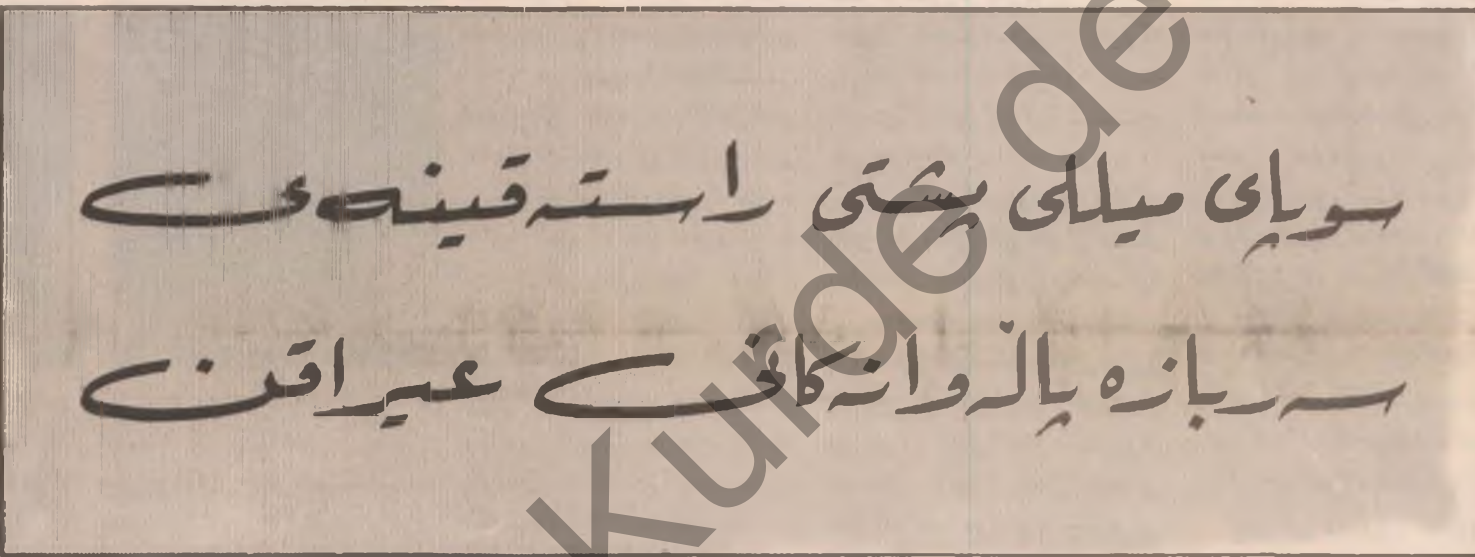 سوپای میللی پشتی راستەقینەی
سەربازە پاڵەوانەکانی عیراقن
Kurde de